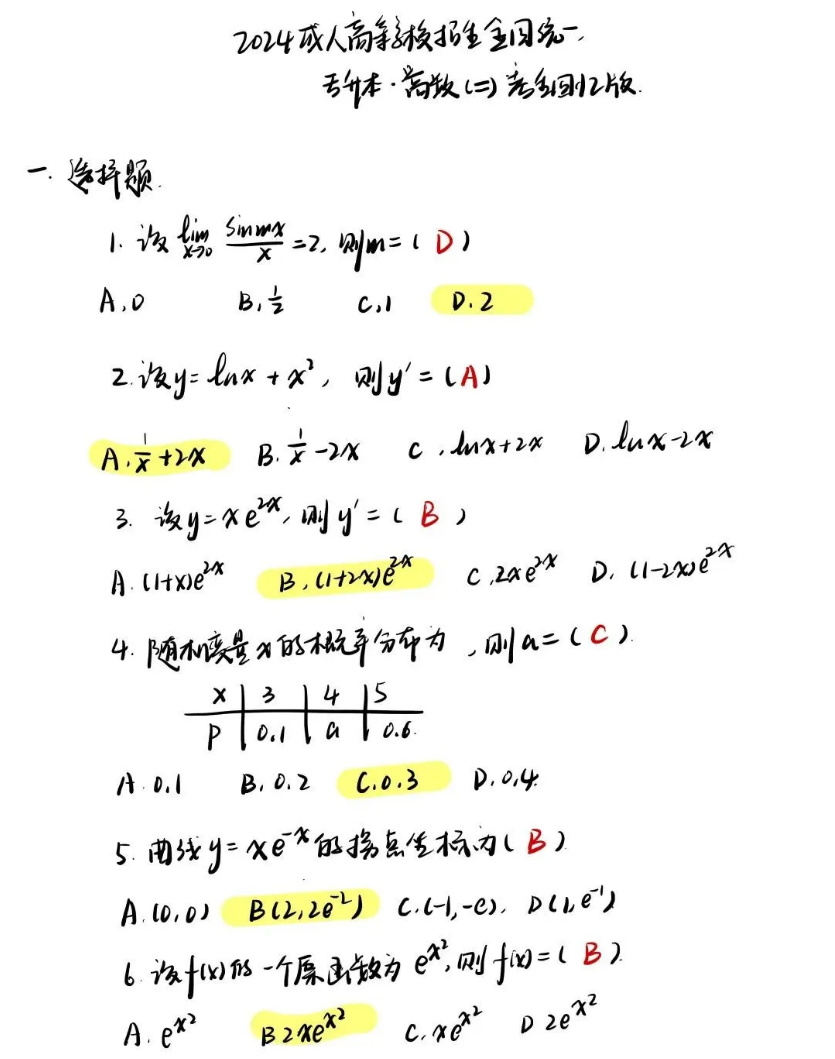 2024成人高等学校招生全国统一
专升本·高数(二)考生回忆版.
一. 选择题.
1. 设 lim x→0 sinmx/x =2, 则m=( D )
A.0 B.1/2 C.1 D.2
2.设y=lnx+x², 则y′=(A)
A.1/x+2x B.1/x-2x C.lnx+2x D.lnx-2x
3. 设y=xe^2x, 则y′=( B )
A.(1+x)e^2x B.(1+2x)e^2x C.2xe^2x D.(1-2x)e^2x
4. 随机变量x的概率分布为 ,则a=( C ).
x 3 4 5
P 0.1 a 0.6.
A.0.1 B.0.2 C.0.3 D.0.4.
5. 曲线y=xe^-x的拐点坐标为( B )
A.(0,0) B(2,2e^-2) C.(-1,-e). D(1,e^-1)
6.设f(x)的一个原函数为e^x²,则f(x)=( B ).
A.e^x² B 2xe^x² C.xe^x² D 2e^x²